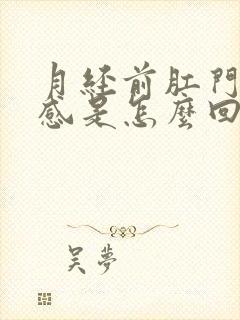 月經前肛門
感是怎麼回
吴夢